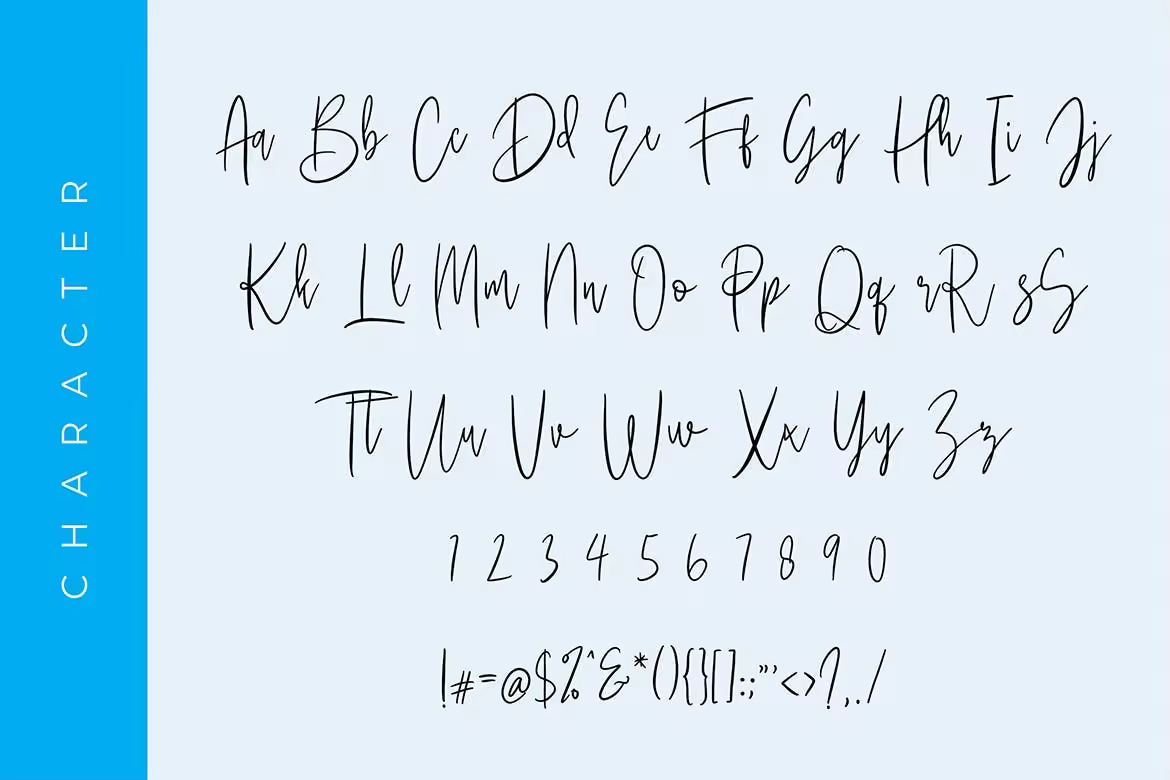 CHARACTER
Aa Bb Cc Dd Ee Ff Gg Hh Ii Jj
Kk Ll Mm Nn Oo Pp Qq rR sS
Tt Uu Vv Ww Xx Yy Zz
1 2 3 4 5 6 7 8 9 0
!#=@$%^&*(){}[]:;"'<>?,./